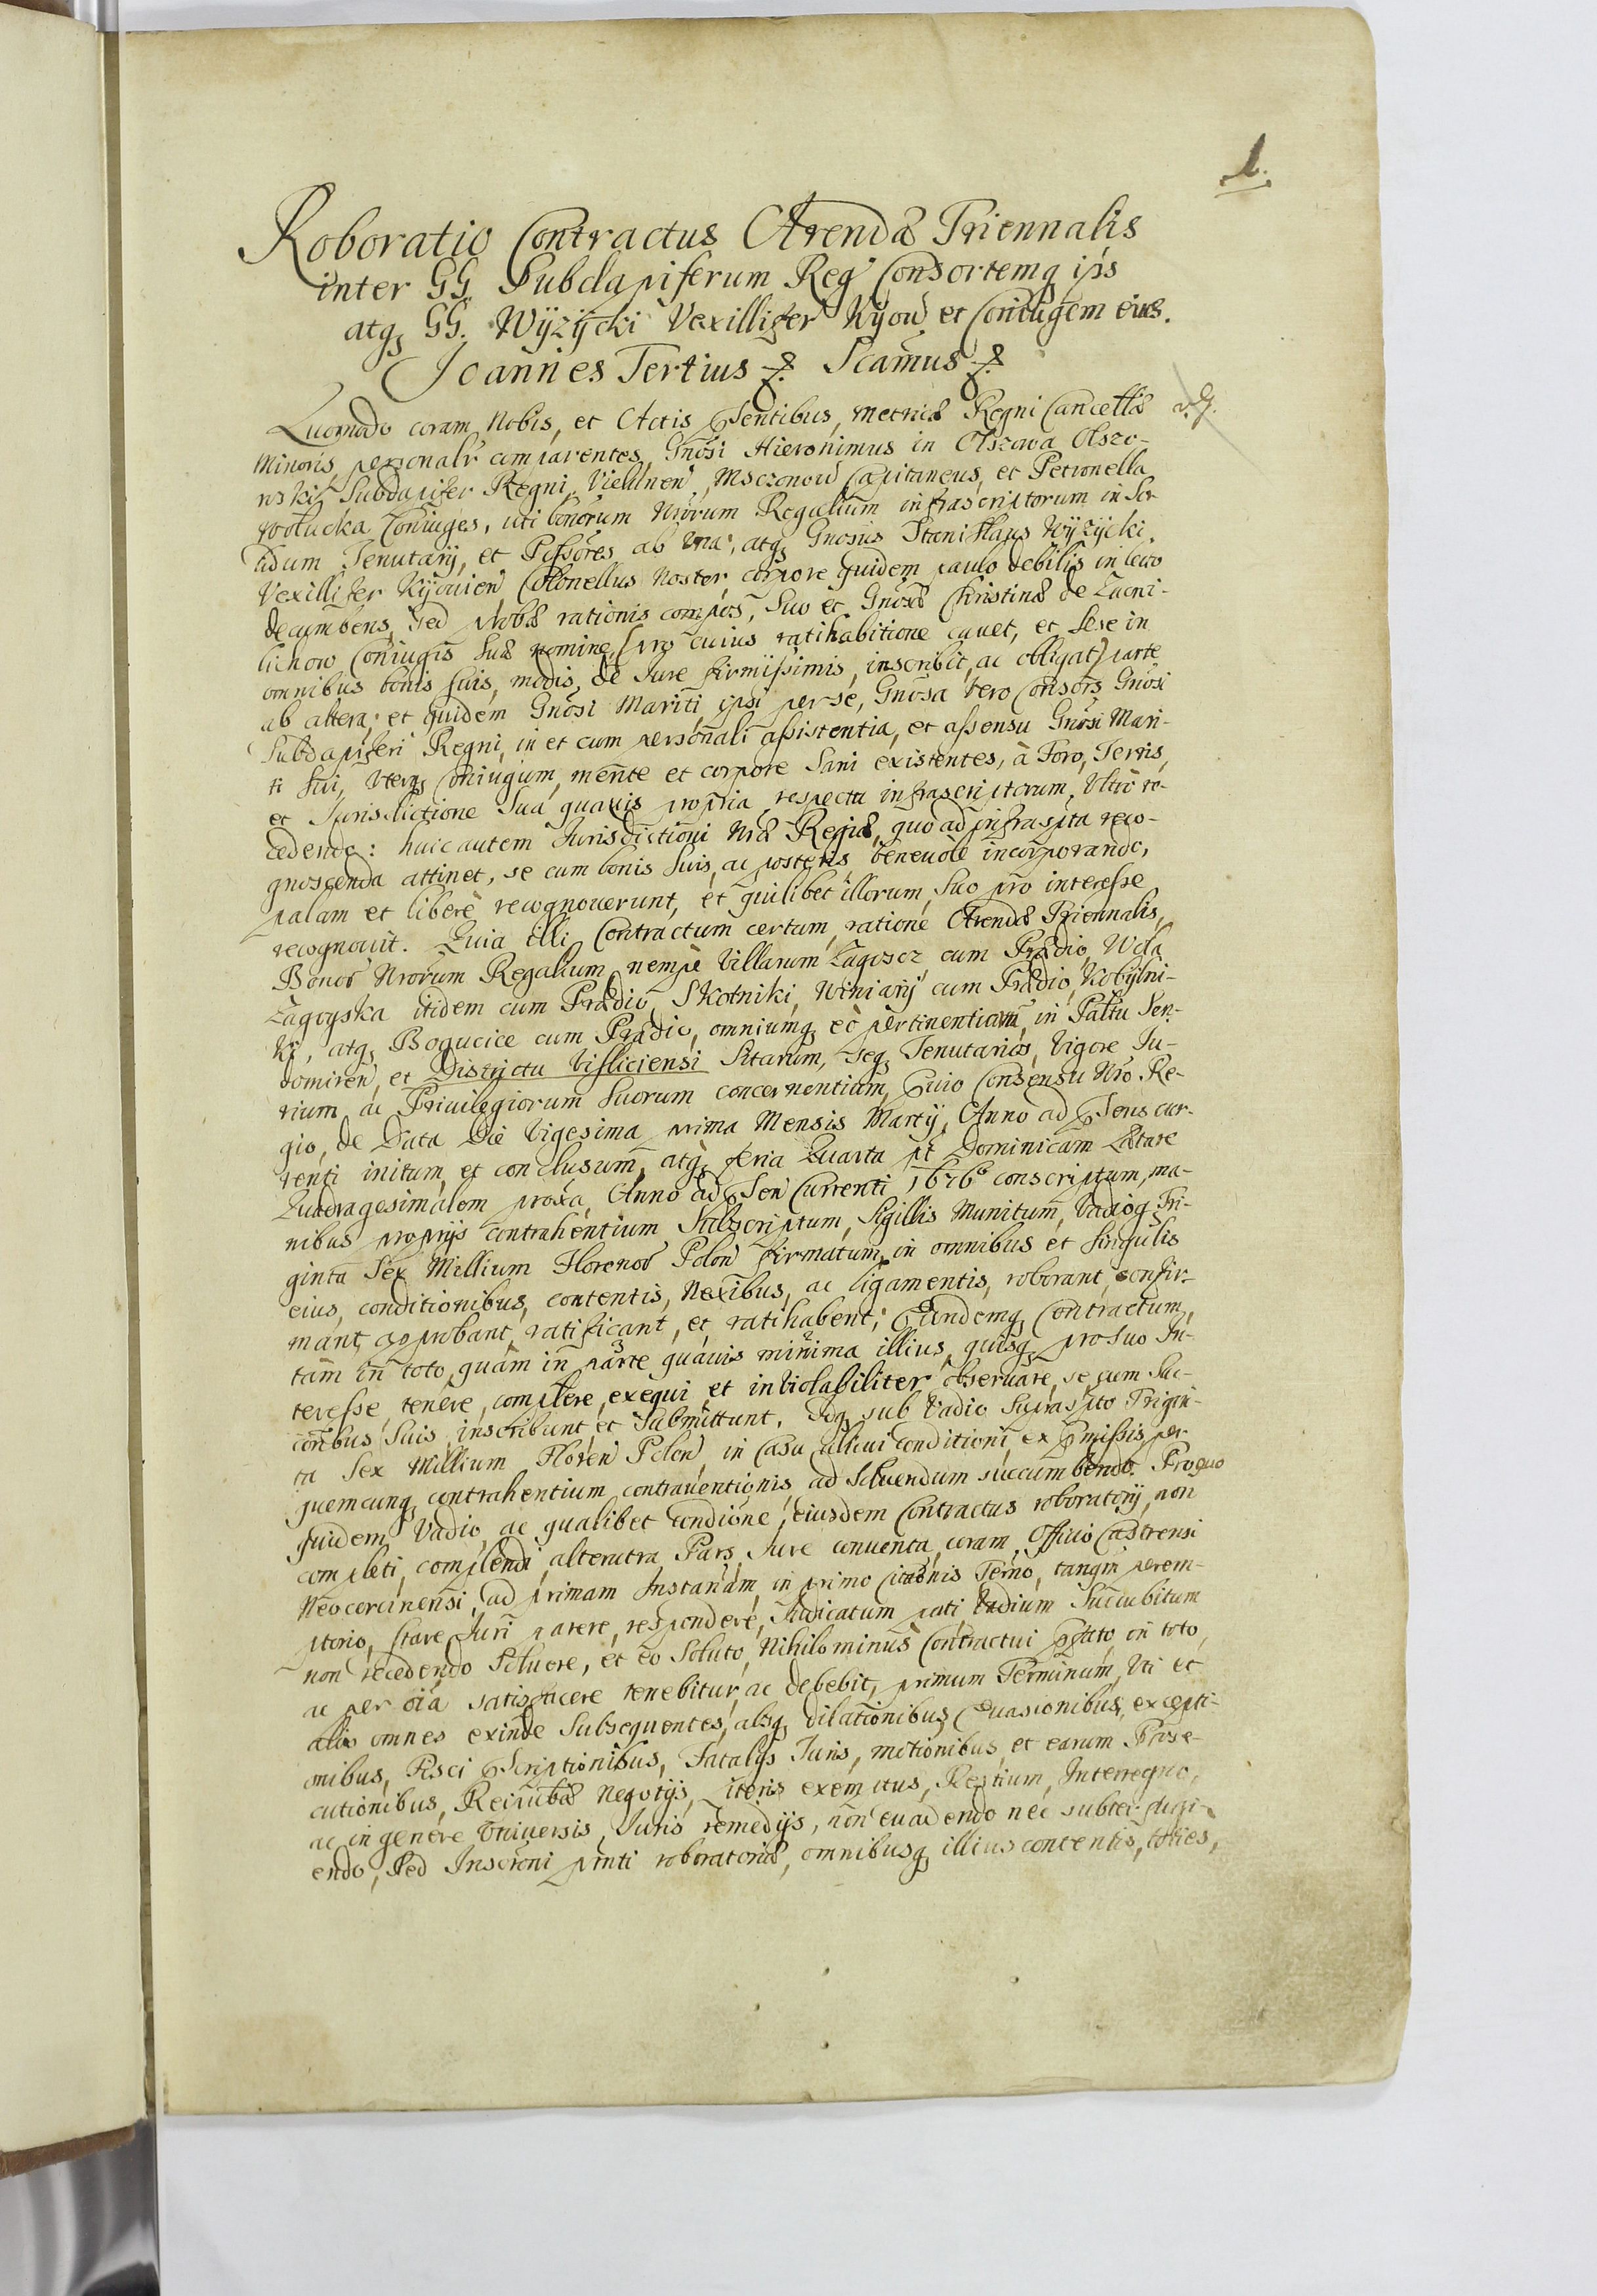 1.
Roboratio Contractus Arendæ Triennalis
inter GG. Subdapiferum Reg. Consortemq ips
atq GG. Wyżycki Vexillifer Kyow. et Coniugem eius.
Joannes Tertius &. Scimus &.
Quomodo coram Nobis, et Actis pñtibus, metricæ Regni Cancellæ
Minoris, personalr comparentes, Gnosi Hieronimus in Olszowa Olszo-
wski Subdapifer Regni, Vielunen, Msczonow Capitaneus, et Petronella
Wołucka Coniuges, uti bonorum Nrorum Regalium infrascriptorum in So-
lidum Tenutarij, et Possores ab una, atq Gnosus Stanislaus Wyżycki,
Vexillifer Kijovien Colonellus Noster, corpore quidem paulo debilis in lecto
decumbens, Sed probæ rationis compos, Suo et Gnosæ Christinæ de
lichow Coniugis Suæ nomine, (pro cuius ratihabitione cauet, et sese in
omnibus bonis suis, modis, de Iure firmissimis, inscribit, ac obligat) parte
ab altera; et quidem Gnosi Mariti ipsi per se, Gnosa vero Consors Gnosi
Subdapiferi Regni, in et cum personali assistentia, et assensu Gnosi Mari-
ti sui, Utrq Coniugum, mente et corpore Sani existentes, à Foro, Terris,
et Iurisdictione Sua quavis propria respectu infrascriptorum, Ultro re-
cedendo: huic autem Iurisdictioni Nræ Regiæ, quo ad infraspta reco-
gnoscenda attinet, se cum bonis suis, ac posteris, beneuolè incorporando,
palam et liberè recognouerunt, et quilibet illorum, Suo pro interesse
recognouit. Quia illi Contractum certum, ratione Arendæ Triennalis,
Bonor Nrorum Regalium, nempè Villarum Zagoscz cum Prædio, Wola
Zagoyska itidem cum Prædio, Skotniki, Winiary cum Prædio, Kobylni-
ki, atq Bogucice cum Prædio, omniumq eò pertinentiarum, in Pałtu Sen-
domiren, et Districtu Visliciensi Sitarum, seq Tenutarios, Vigore Iu-
rium ac Priuilegiorum Suorum concernentium, pvio Consensu Nro Re-
gio, de Data Die Vigesima prima Mensis Martij, Anno ad pñsens cur-
renti initum et conclusum, atq feria Quarta pt Dominicam Lætare
Quadragesimalem proxa, Anno ad pñsen Currenti 1676º conscriptum, ma-
nibus proprijs contrahentium Subscriptum, Sigillis Munitum, Vadioq Tri-
ginta Sex Millium Florenor Polon firmatum, in omnibus et singulis
eius, conditionibus, contentis, Nexibus, ac ligamentis, roborant, confir-
mant, approbant, ratificant, et ratihabent; Eundemq Contractum,
tam in toto, quàm in parte quavis minima illius, quisq pro Suo In-
teresse, tenere, complere, exequi, et inviolabiliter observare, se cum Suc-
coribus Suis inscribunt et Submittunt. Idq sub Vadio Supraspto Trigin-
ta Sex Millium Floren Polon, in Casu alicui Conditioni ex pmissis per
quemcunq contrahentium contrauentionis, ad Soluendum succumbendo. Pro quo
quidem Vadio, ac qualibet condione, eiusdem Contractus roboratorij, non
completi, complendi, alterutra Pars, Iure conuenta, coram Officio Castrensi
Neocorcinensi, ad primam Instantiam, in primo citaonis Terno, tanqm perem-
ptorio, stare, Iuri parere, respondere, Iudicatum pati, Vadium Succubitum
non recedendo Soluere, et eo Soluto, Nihilominus Contractui pfato, in toto,
ac per oia satisfacere tenebitur, ac debebit, primum Terminum, Uti et
alios omnes exinde Subsequentes, absq dilationibus, Euasionibus, excepti-
onibus, Fisci pscriptionibus, Fatalijs Iuris, motionibus, et earum Prose-
cutionibus, Reipubcæ Negotijs, Iteris exemptus, Restium, Interregno,
ac in genere Vniuersis, Iuris remedijs, non euadendo nec subterfugi-
endo, Sed Inscroni pnti roboratoriæ, omnibusq illius contentis, toties,